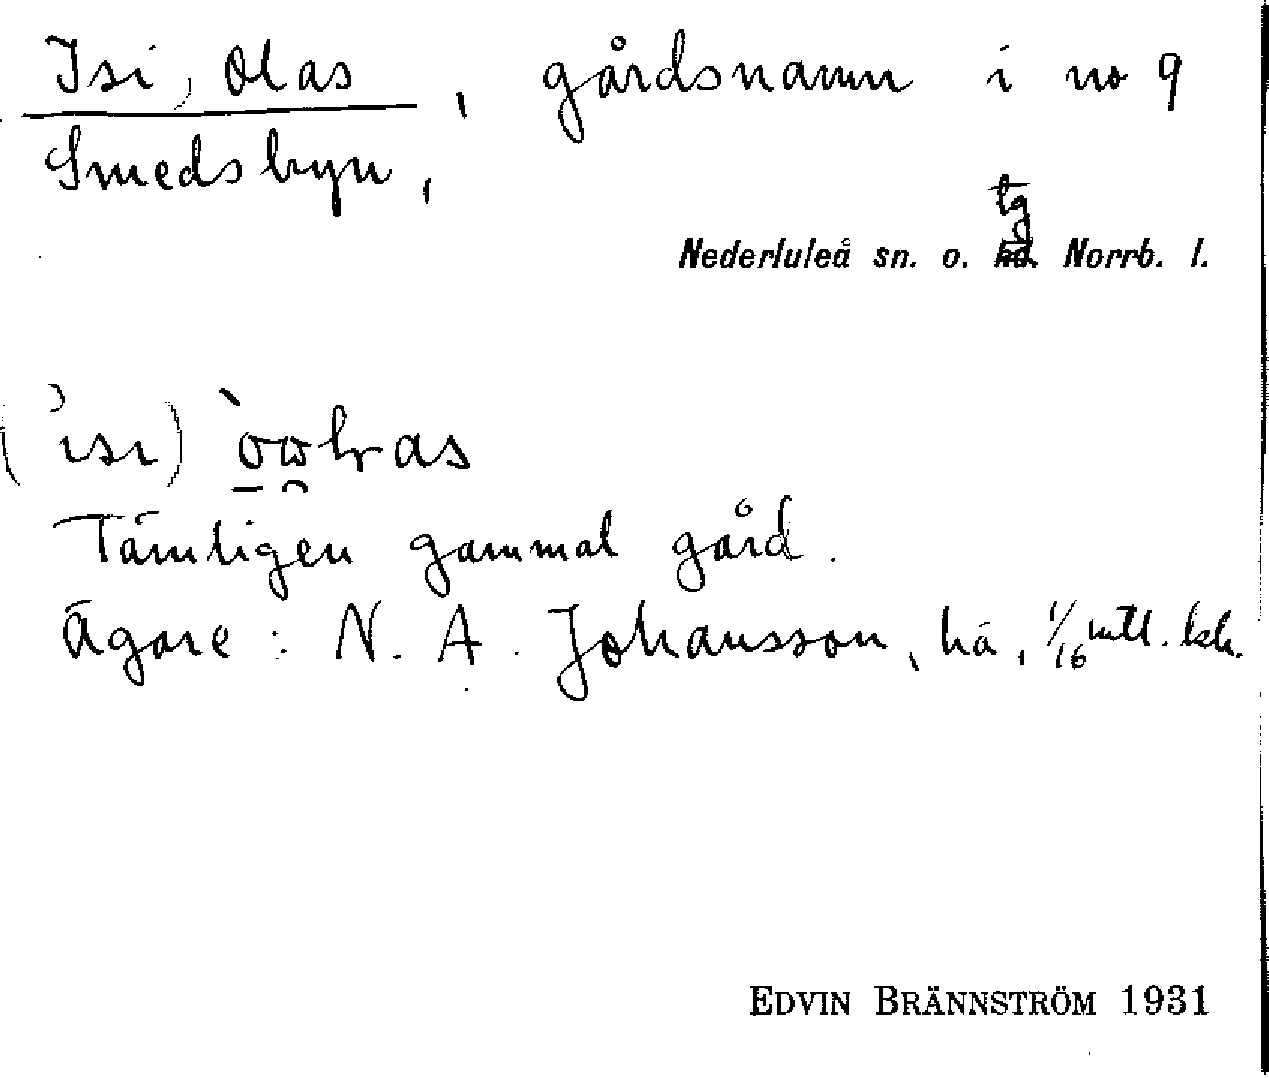 Isi, Olas, gårdsnamn i no 9
Smedsbyn,
tg
Nederluleå sn. o. hd. Norrb. l.
Tämligen gammal gård.
Ägare: N. A. Johansson, hä, 1/16 mtl. kr.
EDVIN BRÄNNSTRÖM 1931